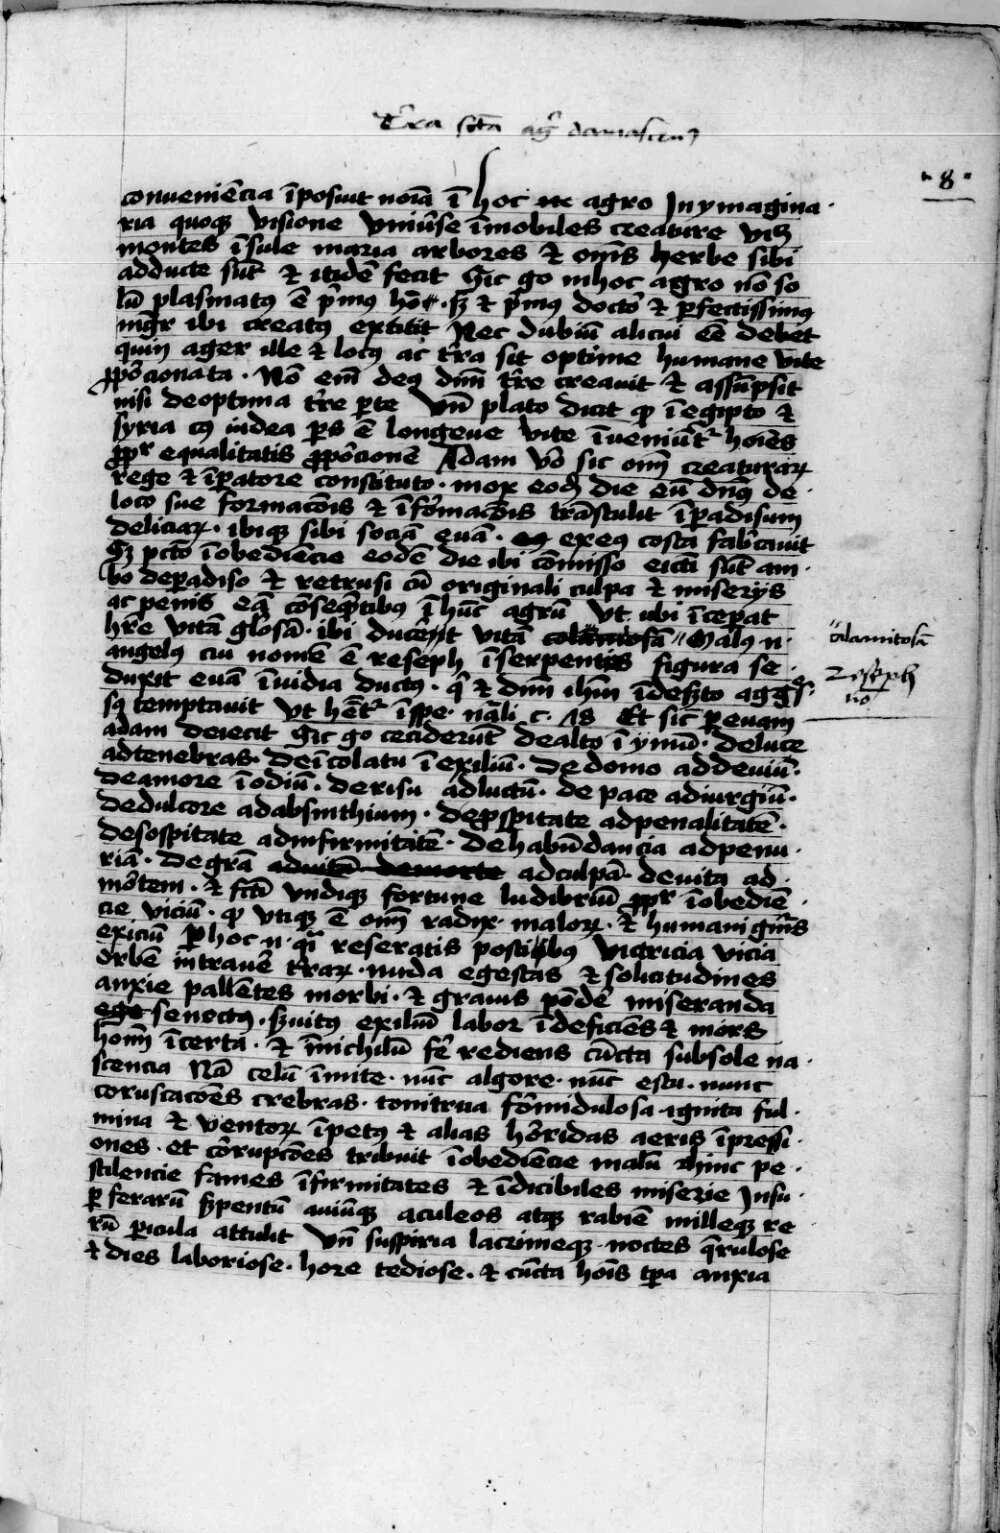 T'ra scā ag' damascen9
· 8 ·
conueniēcia īposuit noīa ī hoc agro Inymagina·
ria quoqꝫ visione vniūse īmobiles creature vꝫ
montes īsule maria arbores et oēs herbe sibi
adducte sūt et itidē fecit Sic go inhoc agro nō so
lū plasmatꝰ ē p'mꝰ hō · sꝫ et p'mꝰ doctor et ꝑfectissimꝰ
mgr ibi creatꝰ extitit Nec dubiū alicui eē debet
quin ager ille et locꝰ ac t'ra sit optime humane vite
ꝓporcionata · Nō em̄ deꝰ dnm̄ t're creauit et assūpsit
nisi deoptima t're ꝑte Vn̄ plato dicit ꝙ ī egipto et
syria cꝰ iudea ꝑs ē longeue vite īueniūt᷑ hoīes
ꝓpt' equalitatis ꝓporcionē Adam v'o sic om̄ creaturaꝝ
rege et īꝑatore constituto · mox eodꝫ die eū dn̄s de·
loco sue formacōis et īformacōis trāstulit ī ꝑadisum
deliciaꝝ · ibiqꝫ sibi sociā euā · exeꝰ costa fab'cauit
Sꝫ pctō īobediēcie eodē die ibi cōmisso eicti sūt am·
bo deꝑadiso et retrusi cū originali culpa et miserijs
ac penis eā cōseqūtibꝰ ī hūc agrū Vt ubi īceꝑat
h're vitā gl'osā · ibi duceret vitā Malꝰ n·
calamitosā
angelꝰ cui nomē ē reseph īserpentis figura se·
Reseph
duxit euā īuidia ductꝰ · q' et dnm̄ ihm̄ ī des'to aggs·
sꝰ temptauit Vt hēt᷑ ī spe · nāli c · 18 Et sic ꝑeuam
adam deiecit Sic go ceciderūt dealto ī ymū · deluce
adtenebras · deīcolatu ī exiliū · de domo addeuiū·
deamore ī odiū · derisu adluctū · de pace adiurgiū·
dedulcore adabsinthium · deꝓsꝑitate adpenalitatē·
desospitate adinfirmitatē · dehabūdancia adpenu·
riā · degrā adculpā · deuita ad·
mortem · et fctī vndiqꝫ fortune ludibriū ꝓpt' īobediē·
cie viciū · ꝙ vtiqꝫ ē om̄ radix · maloꝝ · et humani gn̄is
exiciū ꝑ hoc n · qi reseratis postibꝰ victricia vicia
orbē intrauē t'raꝝ · nuda egestas et solicitudines
anxie pallētes morbi · et grauis pōde miseranda
senectꝰ · s'uitꝰ exiliū labor īdeficiēs et mors
hoīm īcerta · et īnichilū fe' rediens cūcta subsole na·
scencia Nā celū īmite · nūc algore · nūc estu · nunc
coruscacōes crebras · tonitrua formidulosa · ignita ful·
mina et ventoꝝ īpetꝰ et alias horridas aeris īpressi·
ones · et corrupcōes tribuit īobediēcie malū Hinc pe·
stilencie fames īfirmitates et īdicibiles miserie Insu·
ꝑ ferarū s'pentū auiūqꝫ aculeos atqꝫ rabiē milleqꝫ re
rū ꝑicula attulit Vn̄ suspiria lacrimeqꝫ · noctes q̄rulose
et dies laboriose · hore tediose · et cūcta hoīs tꝑa anxia